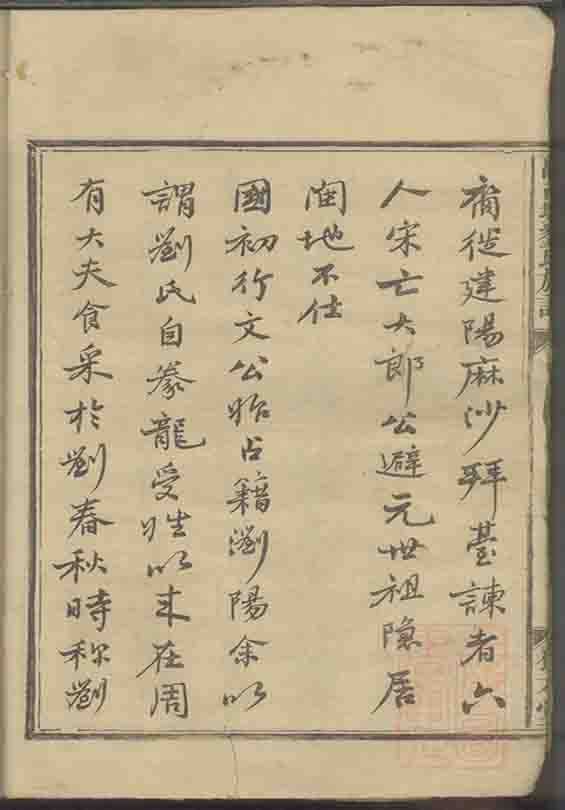 裔從建陽麻沙拜臺諫者六
人宋亡大郎公避元世祖隱居
閩地不仕
國初行文公始占籍瀏陽余以
謂劉氏自豢龍受姓以來在周
有大夫食采於劉春秋時称劉